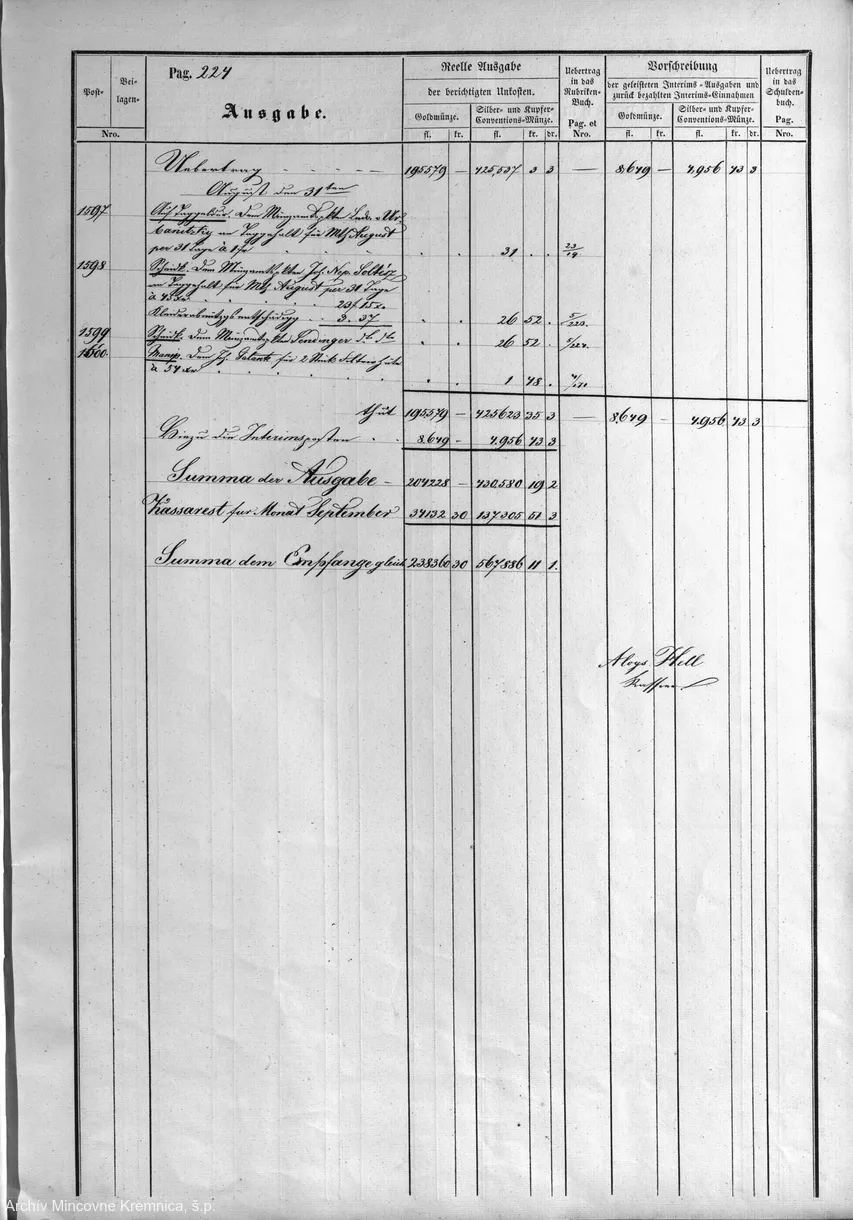 Post-
Nro.
Bei-
lagen-
Pag. 224
Ausgabe.
Reelle Ausgabe
der berichtigten Unkosten.
Goldmünze.
Silber- und Kupfer-
Conventions-Münze.
fl. kr. fl. kr. dr.
Uebertrag
in das
Rubriken-
Buch.
Pag. et
Nro.
Vorschreibung
der geleisteten Interims-Ausgaben und
zurück bezahlten Interims-Einnahmen
Goldmünze.
Silber- und Kupfer-
Conventions-Münze.
fl. kr. fl. kr. dr.
Uebertrag
in das
Schulden-
buch.
Pag.
Nro.
Uebertrag 195579 — 425,537 3 3 — 8,649 — 4,956 43 3
August den 31ten
1597 Dem Münzamts
Taggehalt für Mth August
per 31 Tage à 1 fr 31 . . 23/19
1598 Scheidk. Dem Münzamts Joh. Nep. Soltész
an Taggehalt für Mth August per 31 Tage
à 45 xr 23f 15x
3. 37 26 52 . 5/223.
1599 Scheidk. Dem Münzamts dto dto 26 52 . 5/224.
1600 Manip. Dem Jos. für 2 Stück Filterhüte
à 54 xr 1 48 .
thut 195579 — 425623 35 3 — 8,649 — 4,956 43 3
Hiezu die Interimsposten 8,649 — 4,956 43 3
Summa der Ausgabe — 204228 — 430,580 19 2
Kassarest für Monat September 34132 30 137305 51 3
Summa dem Empfange gleich 238360 30 567,886 11 1.
Aloys Hell
Kassier
Archív Mincovne Kremnica, š.p.